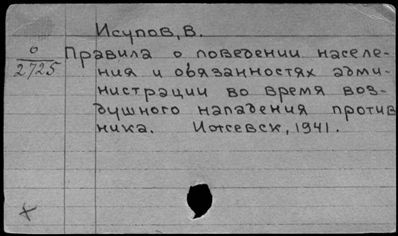 Исупов, В.
о
2725
Правила о поведении населе-
ния и обязанностях адми-
нистрации во время воз-
душного нападения против
ника. Ижевск, 1941.